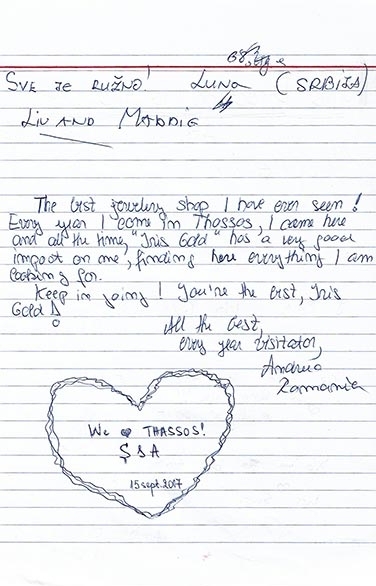 SVE JE RUŽNO! LUNA (SRBIJA)
LIV AND MADDIE
The best jewelery shop I have ever seen!
Every year I come in Thassos, I came here
and all the time, "Iris Gold" has a very good
impact on me, finding here everything I am
looking for.
Keep in going! You're the best, Iris
Gold!
All the best,
every year visitator,
Andreea
Romania
We ♥ THASSOS!
15 sept. 2007